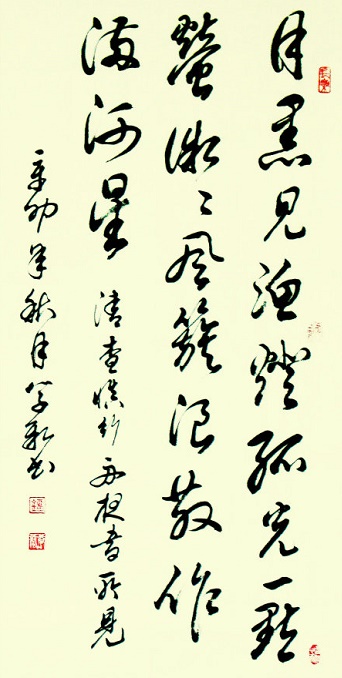 月黑見漁燈孤光一點
螢微〻風簇浪散作
滿河星 清查慎行舟夜書所見
辛卯年秋月書